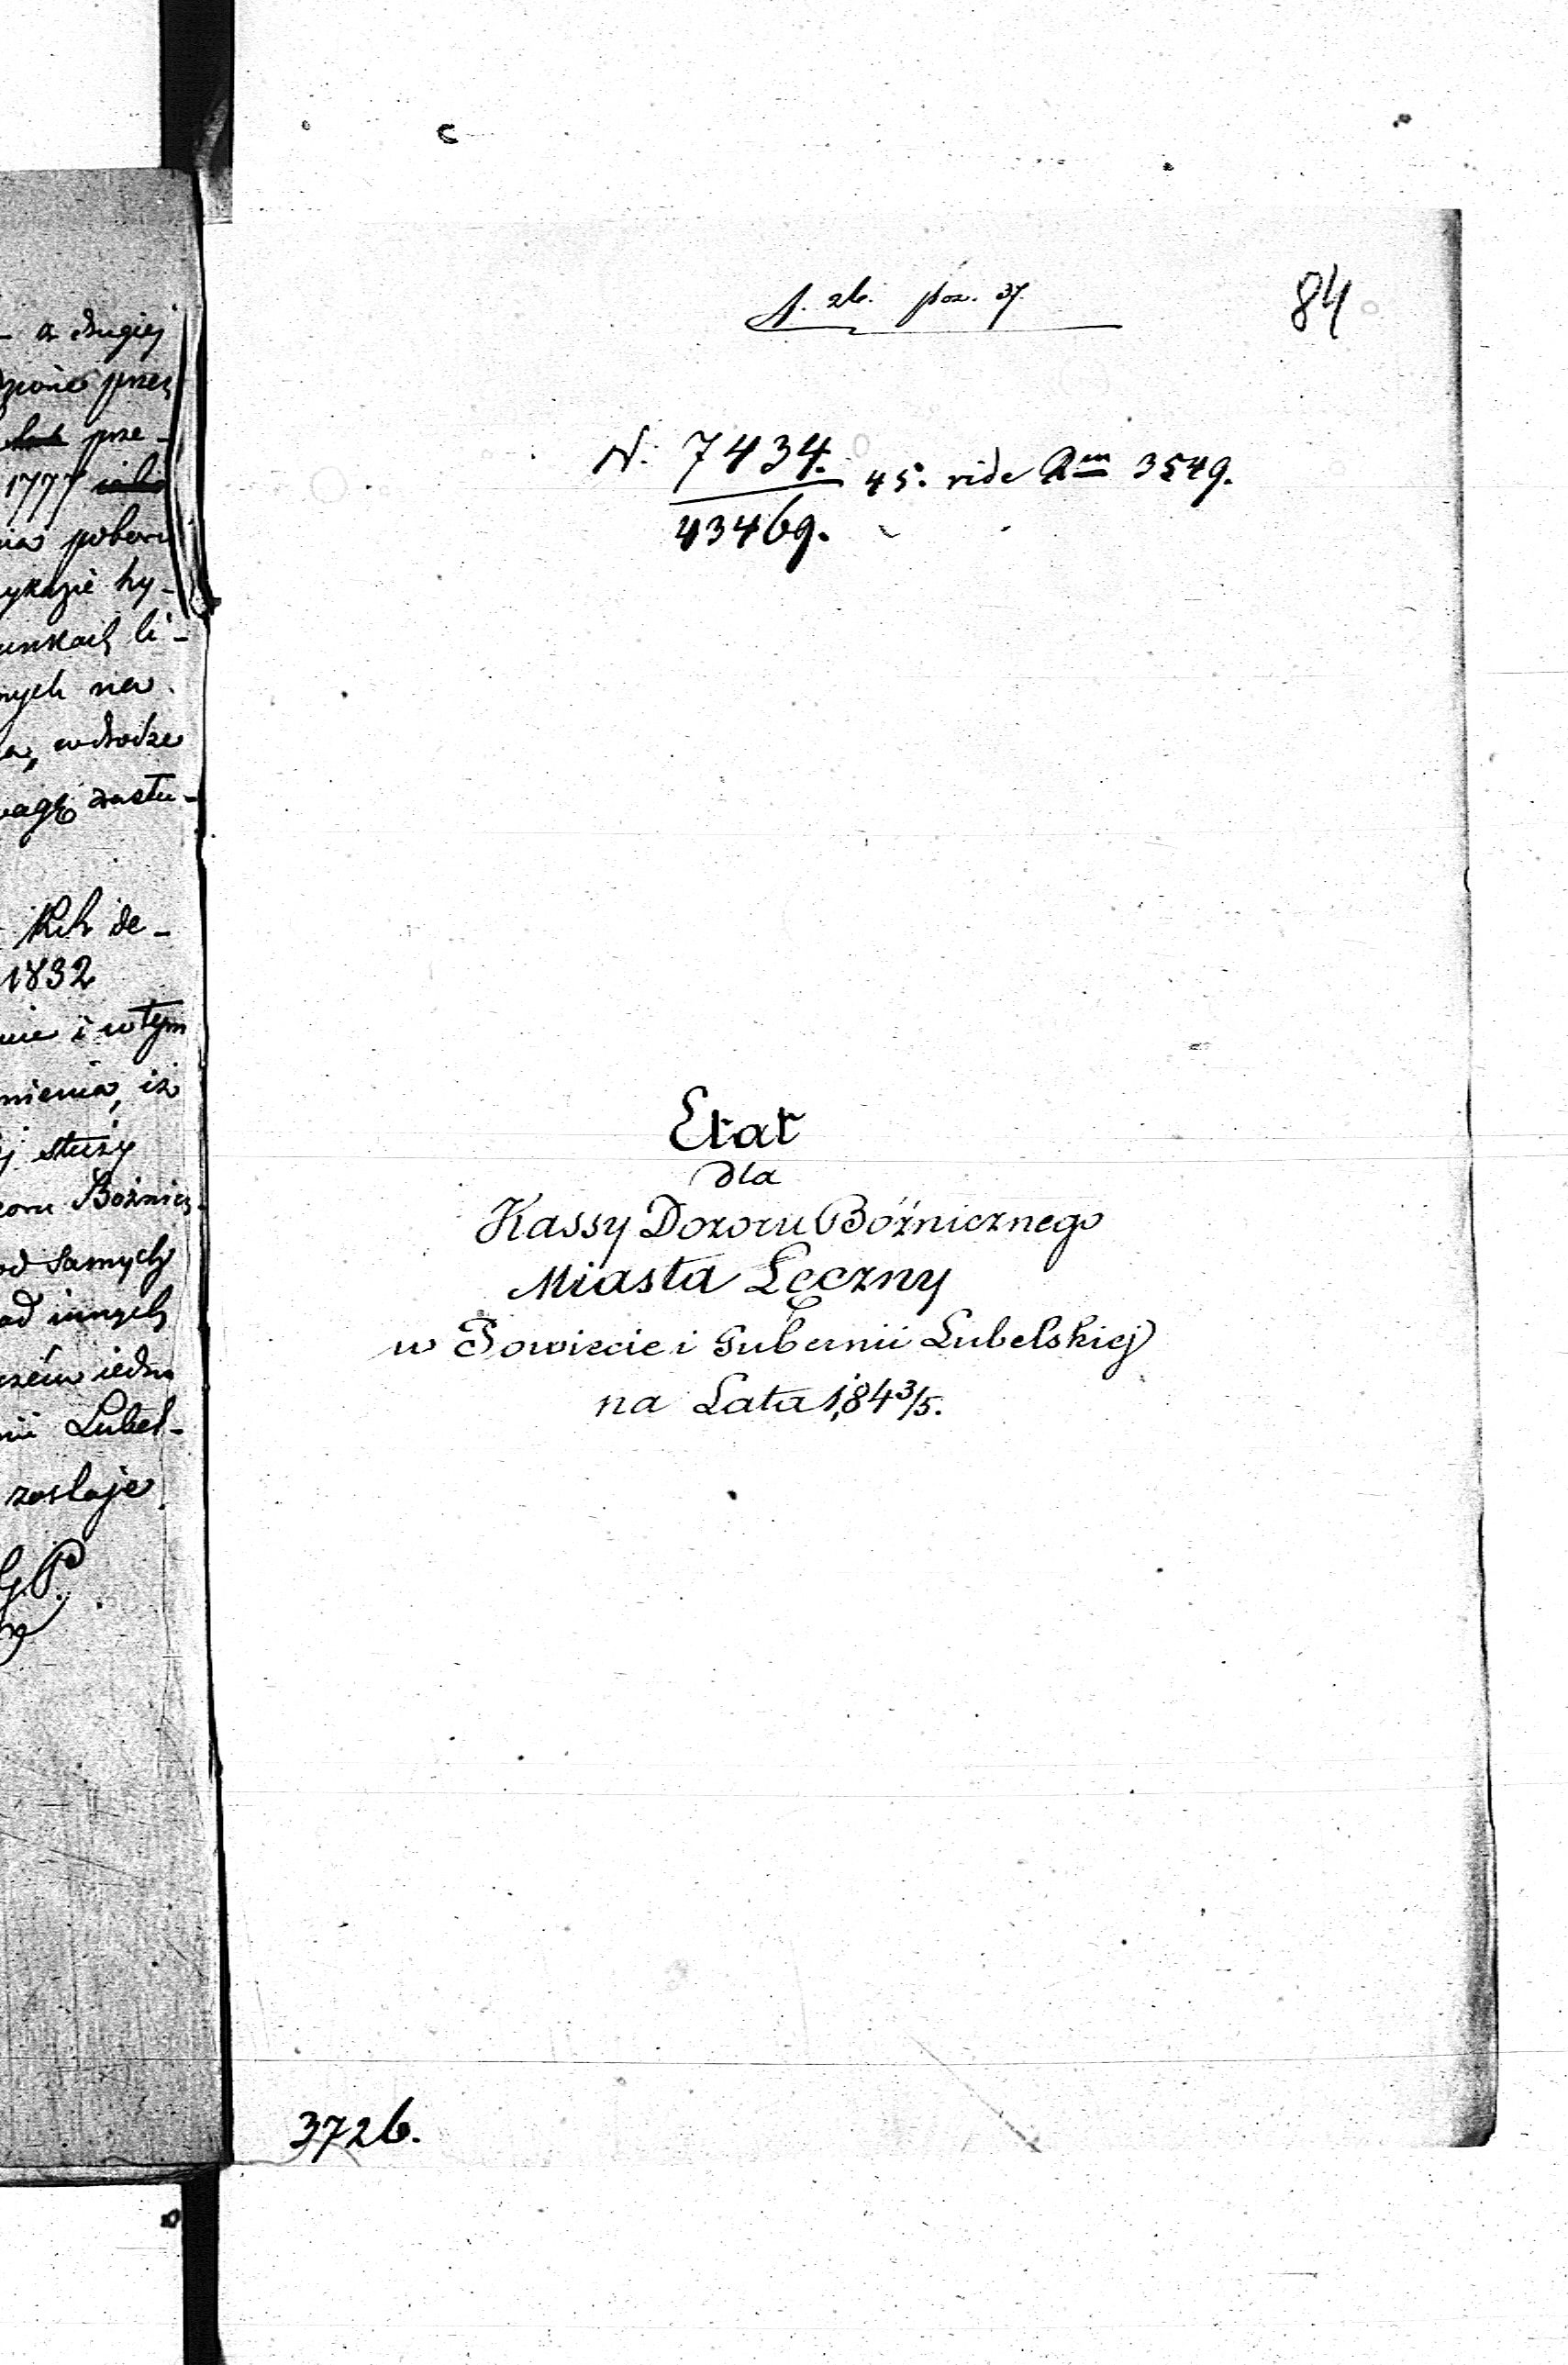 - z drugiej
dzione przez
prze-
1777
nia poboru
ykazie hy-
unkach li-
nych na
a, wdrodze
wagę zasłu-
Rch de-
1832
nie i w tym
mienia, iż
j służy
zoru Bóżnicz-
od samych
od innych
iedn
nii Lubel-
zostaje.
84
poz. 37.
N: 7434.
45. vide Rm 3549.
43469.
Etat
dla
Kassy Dozoru Bóżnicznego
Miasta Łęczny
w Powiecie i Gubernii Lubelskiej
na Lata 1843/5.
3726.